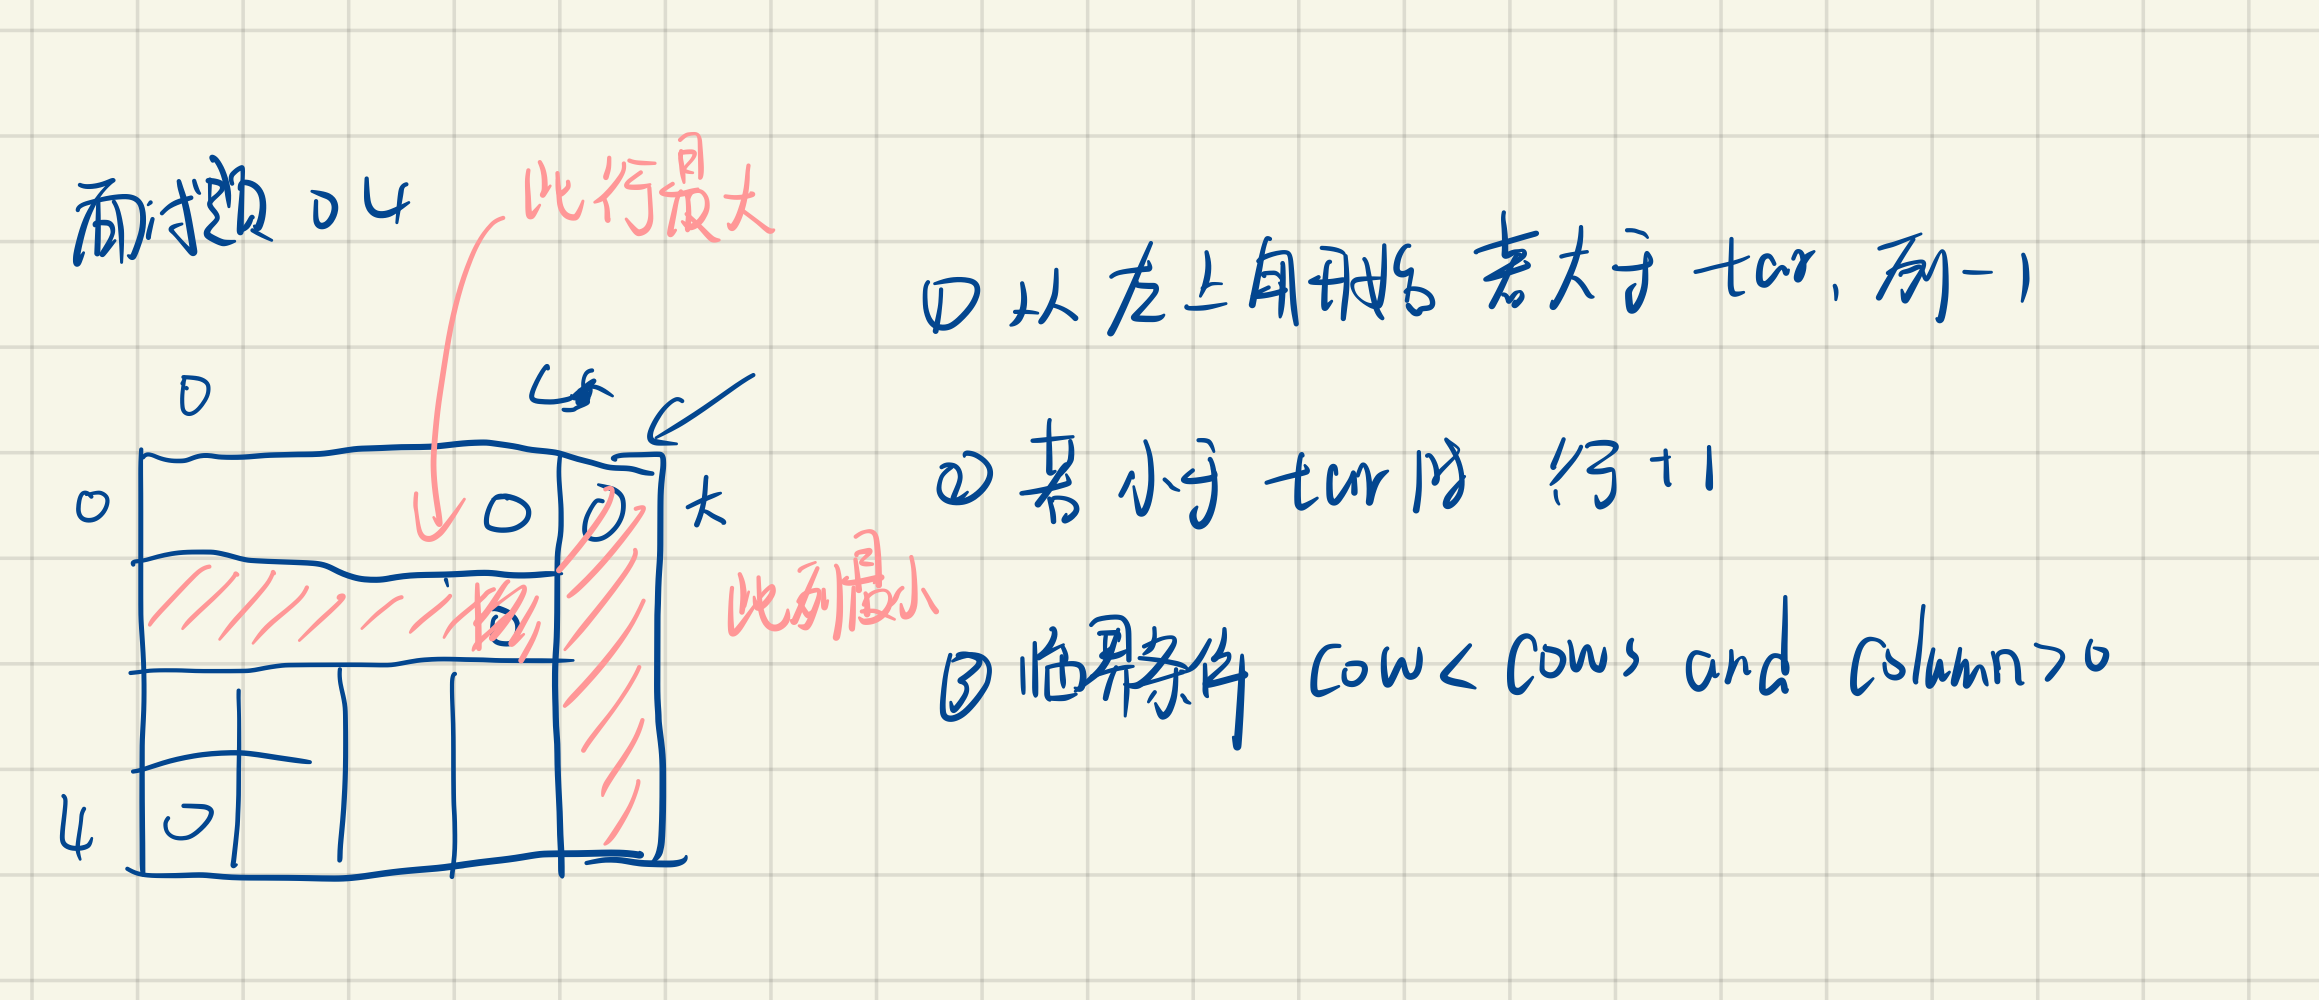 面试题 04
此行最大
① 从左上角开始 若大于 tar, 列-1
0 4
0 大
② 若小于 tar时 行+1
此列最小
③ 临界条件 cow < cows and column>0
4